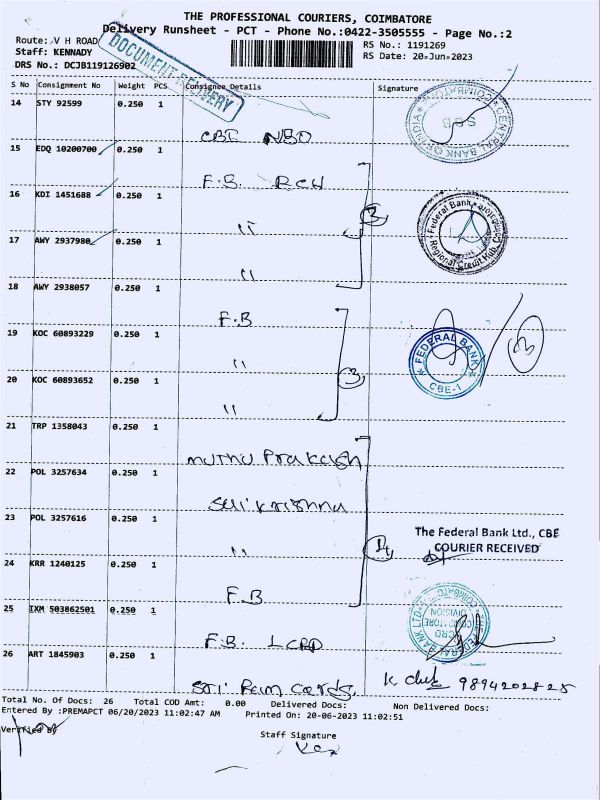 THE PROFESSIONAL COURIERS, COIMBATORE
Delivery Runsheet - PCT - Phone No.:0422-3505555 - Page No.:2
Route: V H ROAD
RS No.: 1191269
Staff: KENNADY
RS Date: 20-Jun-2023
DRS No.: DCJB119126902
DOCUMENT DELIVERY
S No Consignment No Weight PCS Consignee Details Signature
14 STY 92599 0.250 1
CBE NBO
CENTRAL BANK OF INDIA
15 EDQ 10200700 0.250 1
F.B. RCH
16 KDI 1451688 0.250 1
"
3
Federal Bank
Regional Credit Hub, Coimbatore
17 AWY 2937980 0.250 1
"
18 AWY 2938057 0.250 1
F.B
19 KOC 60893229 0.250 1
"
3
FEDERAL BANK
CBE-1
3
20 KOC 60893652 0.250 1
"
21 TRP 1358043 0.250 1
Muthu Prakash
22 POL 3257634 0.250 1
Sai Krishna
23 POL 3257616 0.250 1
"
The Federal Bank Ltd., CBE
COURIER RECEIVED
24 KRR 1240125 0.250 1
F.B
25 IXM 503862501 0.250 1
F.B. LCRD
FEDERAL BANK LTD
LCRD
DIVISION
26 ART 1845903 0.250 1
Sri Ram Cards.
9894202825
Total No. Of Docs: 26 Total COD Amt: 0.00 Delivered Docs: Non Delivered Docs:
Entered By :PREMAPCT 06/20/2023 11:02:47 AM Printed On: 20-06-2023 11:02:51
Verified By
Staff Signature